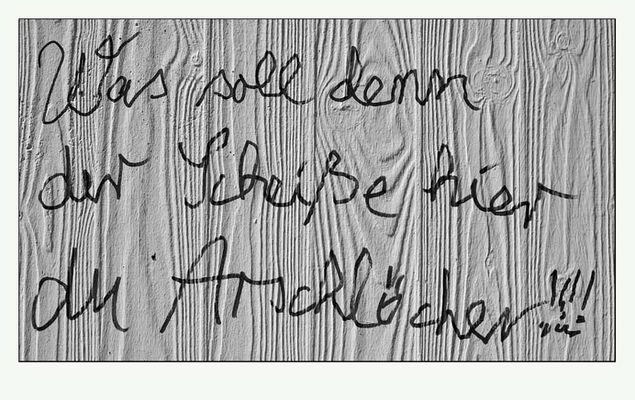 Was soll denn
der Scheiße hier
du Arschlöcher!!!!